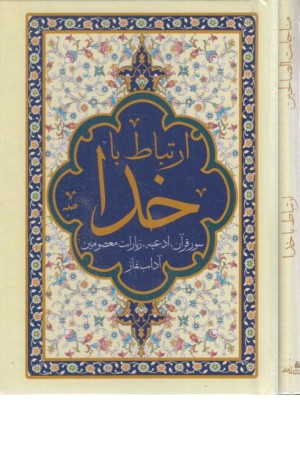 ارتباط با
خدا
سور قرآن، ادعیه، زیارات معصومین
آداب نماز
مناجات الصالحین
ارتباط با خدا